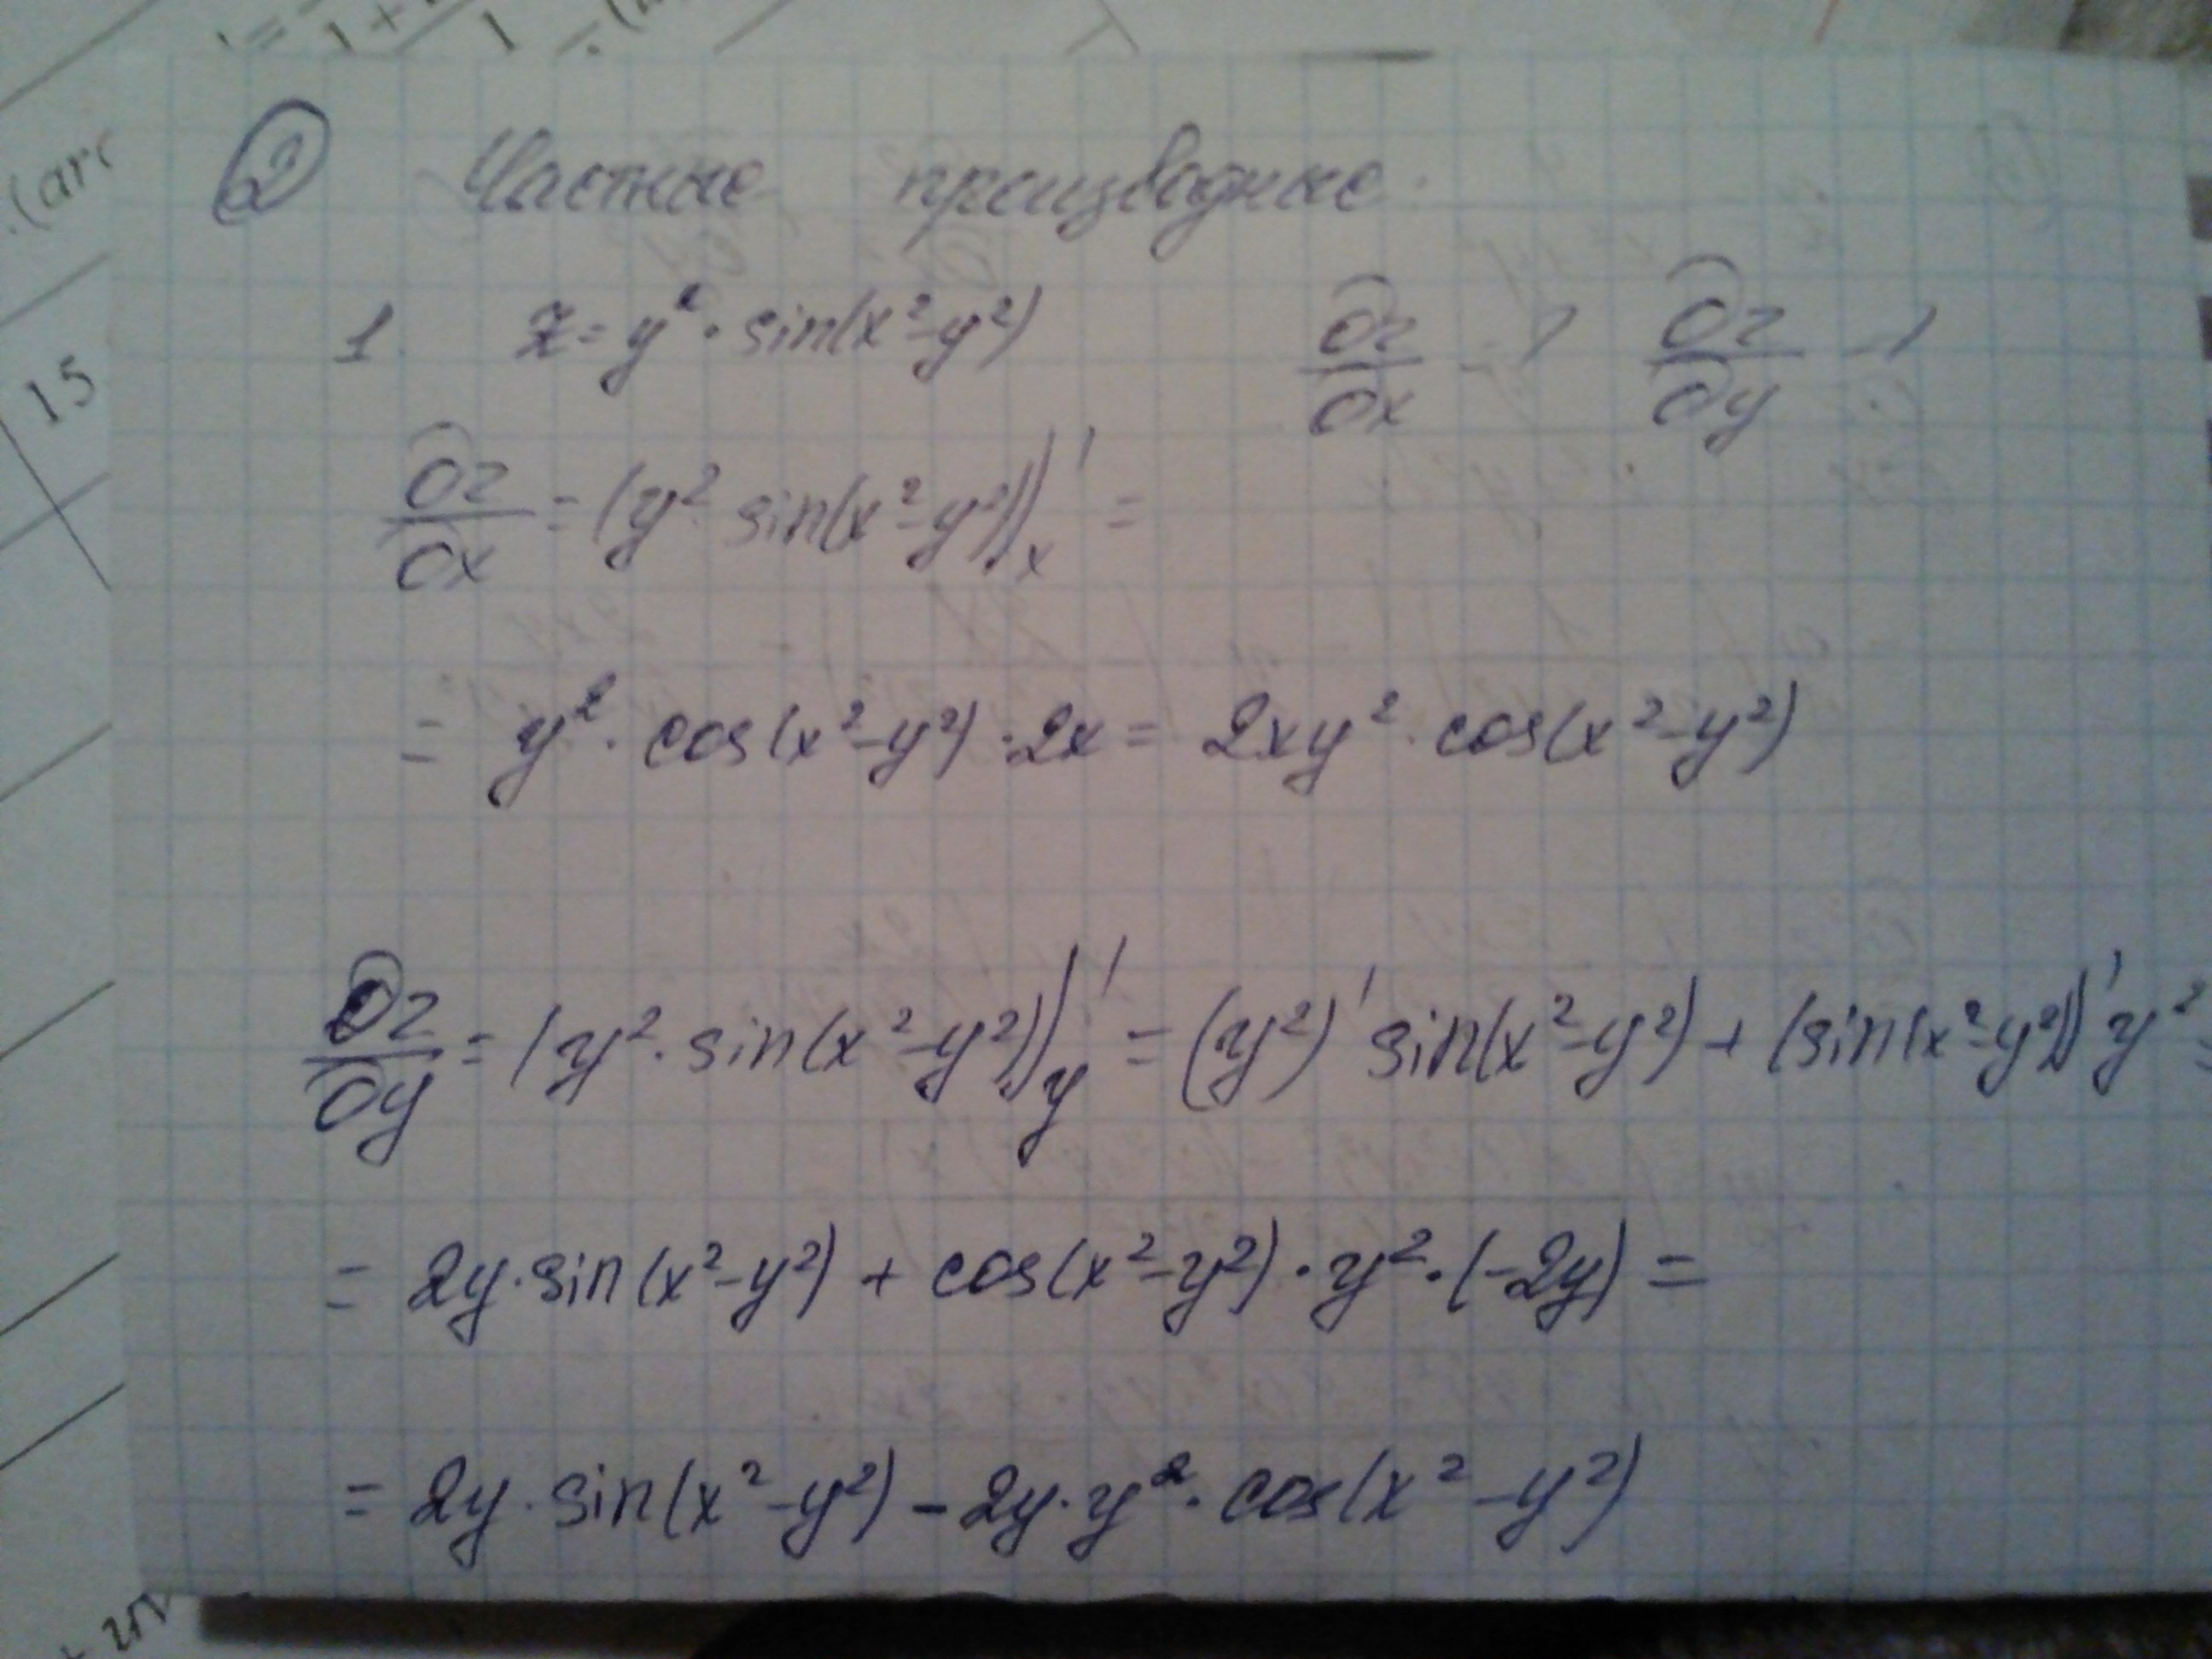 ② Частные производные.
1. z = y² · sin(x²-y²) ∂z/∂x - ? ∂z/∂y - ?
∂z/∂x = (y² · sin(x²-y²))'ₓ =
= y² · cos(x²-y²) · 2x = 2xy² · cos(x²-y²)
∂z/∂y = (y² · sin(x²-y²))'_y = (y²)' sin(x²-y²) + (sin(x²-y²))' y² =
= 2y · sin(x²-y²) + cos(x²-y²) · y² · (-2y) =
= 2y · sin(x²-y²) - 2y · y² · cos(x²-y²)
(arc
15